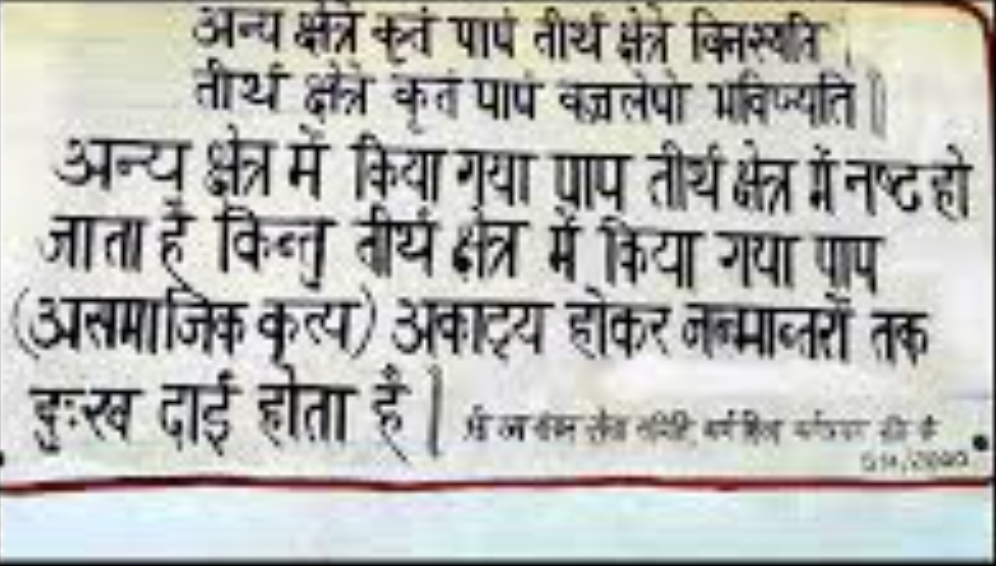 अन्य क्षेत्रे कृतं पापं तीर्थ क्षेत्रे विनश्यति |
तीर्थ क्षेत्रे कृतं पापं वज्रलेपो भविष्यति ||
अन्य क्षेत्र में किया गया पाप तीर्थ क्षेत्र में नष्ट हो
जाता है किन्तु तीर्थ क्षेत्र में किया गया पाप
(असमाजिक कृत्य) अकाट्य होकर जन्मान्तरों तक
दुःख दाई होता है |